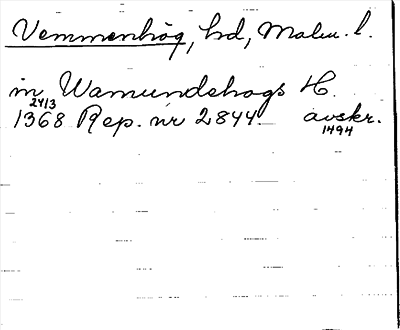 Vemmenhög, hd, Malm. l.
in Wamundshogs H.
24/3
1368 Rep. nr 2844 avskr.
1494